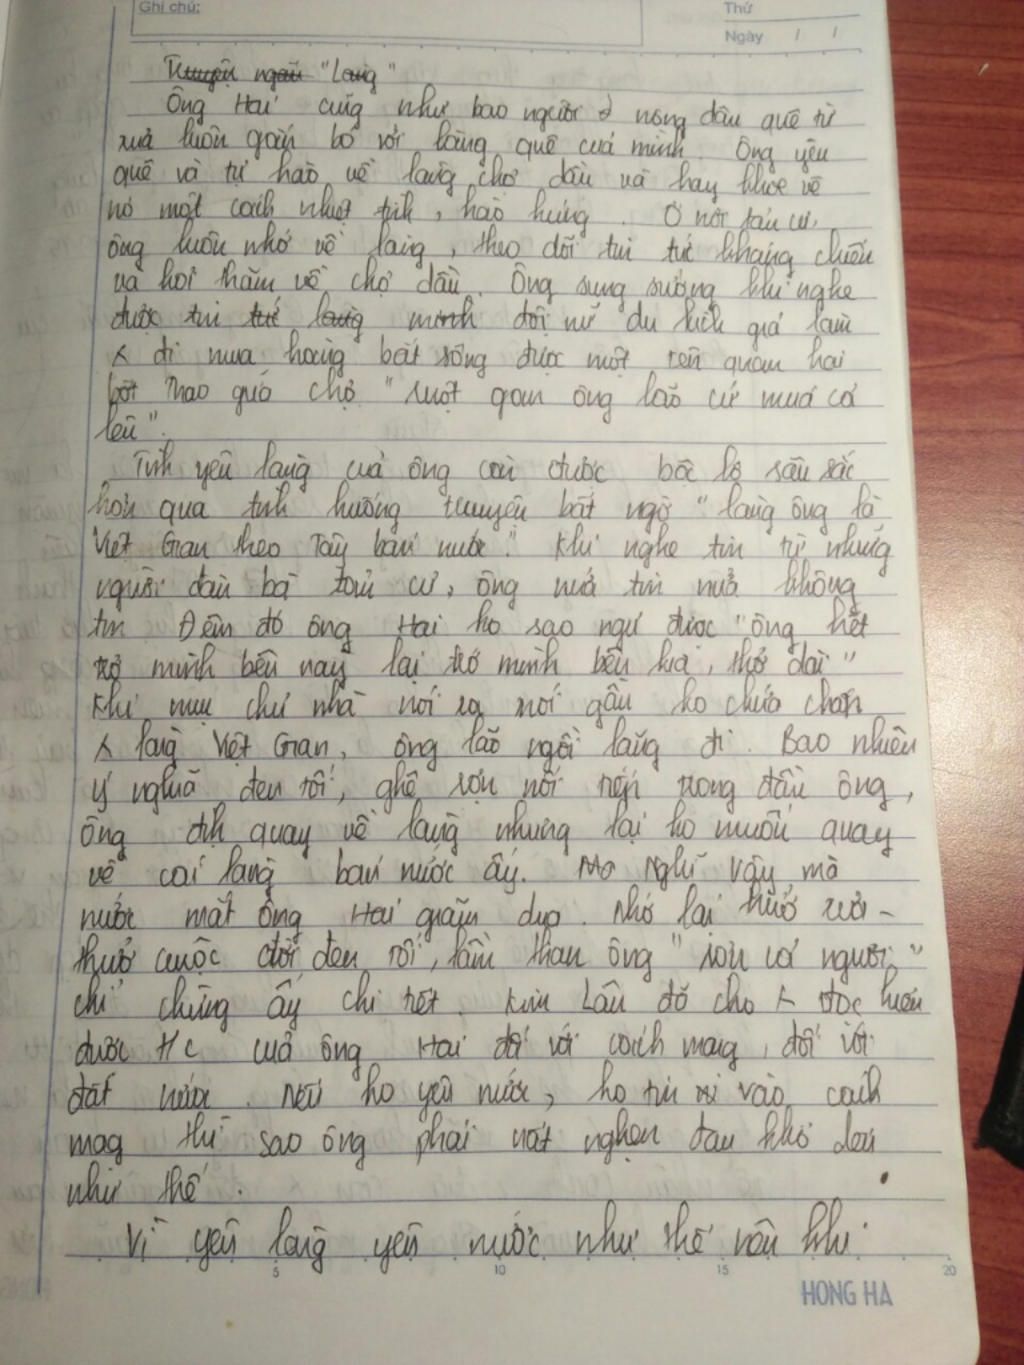 Ghi chú:
Thứ
Ngày / /
Truyện ngắn "Làng"
Ông Hai cũng như bao người ở nông dân quê từ
xưa luôn gắn bó với làng quê của mình. Ông yêu
quê và tự hào về làng chợ dầu và hay khoe về
nó một cách nhiệt tình, hào hứng. Ở nơi tản cư,
ông luôn nhớ về làng, theo dõi tin tức kháng chiến
và hỏi thăm về chợ dầu. Ông sung sướng khi nghe
được tin tức làng mình đội nữ du kích giả làm
đi mua hàng bắt sống được một tên quan hai
bốt Thao giữa chợ "ruột gan ông lão cứ múa cả
lên".
Tình yêu làng của ông còn được bộc lộ sâu sắc
hơn qua tình huống truyện bất ngờ "làng ông là
Việt Gian theo Tây bán nước". Khi nghe tin từ những
người đàn bà tản cư, ông nửa tin nửa không
tin. Đêm đó ông Hai ko sao ngủ được "ông hết
trở mình bên này lại trở mình bên kia, thở dài"
Khi mụ chủ nhà nói ra nói gần ko chứa chấp
làng Việt Gian, ông lão ngồi lặng đi. Bao nhiêu
ý nghĩ đen tối, ghê rợn nối tiếp trong đầu ông,
ông định quay về làng nhưng lại ko muốn quay
về cái làng bán nước ấy. Nghĩ vậy mà
nước mắt ông Hai giàn dụa. Nhớ lại thuở xưa -
thuở cuộc đời đen tối, lầm than ông "rợn cả người"
chỉ chừng ấy chi tiết. Kim Lân đã cho đọc hiểu
được t/c của ông Hai đối với cách mạng, đối với
đất nước. Nếu ko yêu nước, ko tin vào cách
mạng thì sao ông phải nát nghẹn đau khổ đến
như thế.
Vì yêu làng yêu nước như thế nên khi
5 10 15 20
HONG HA